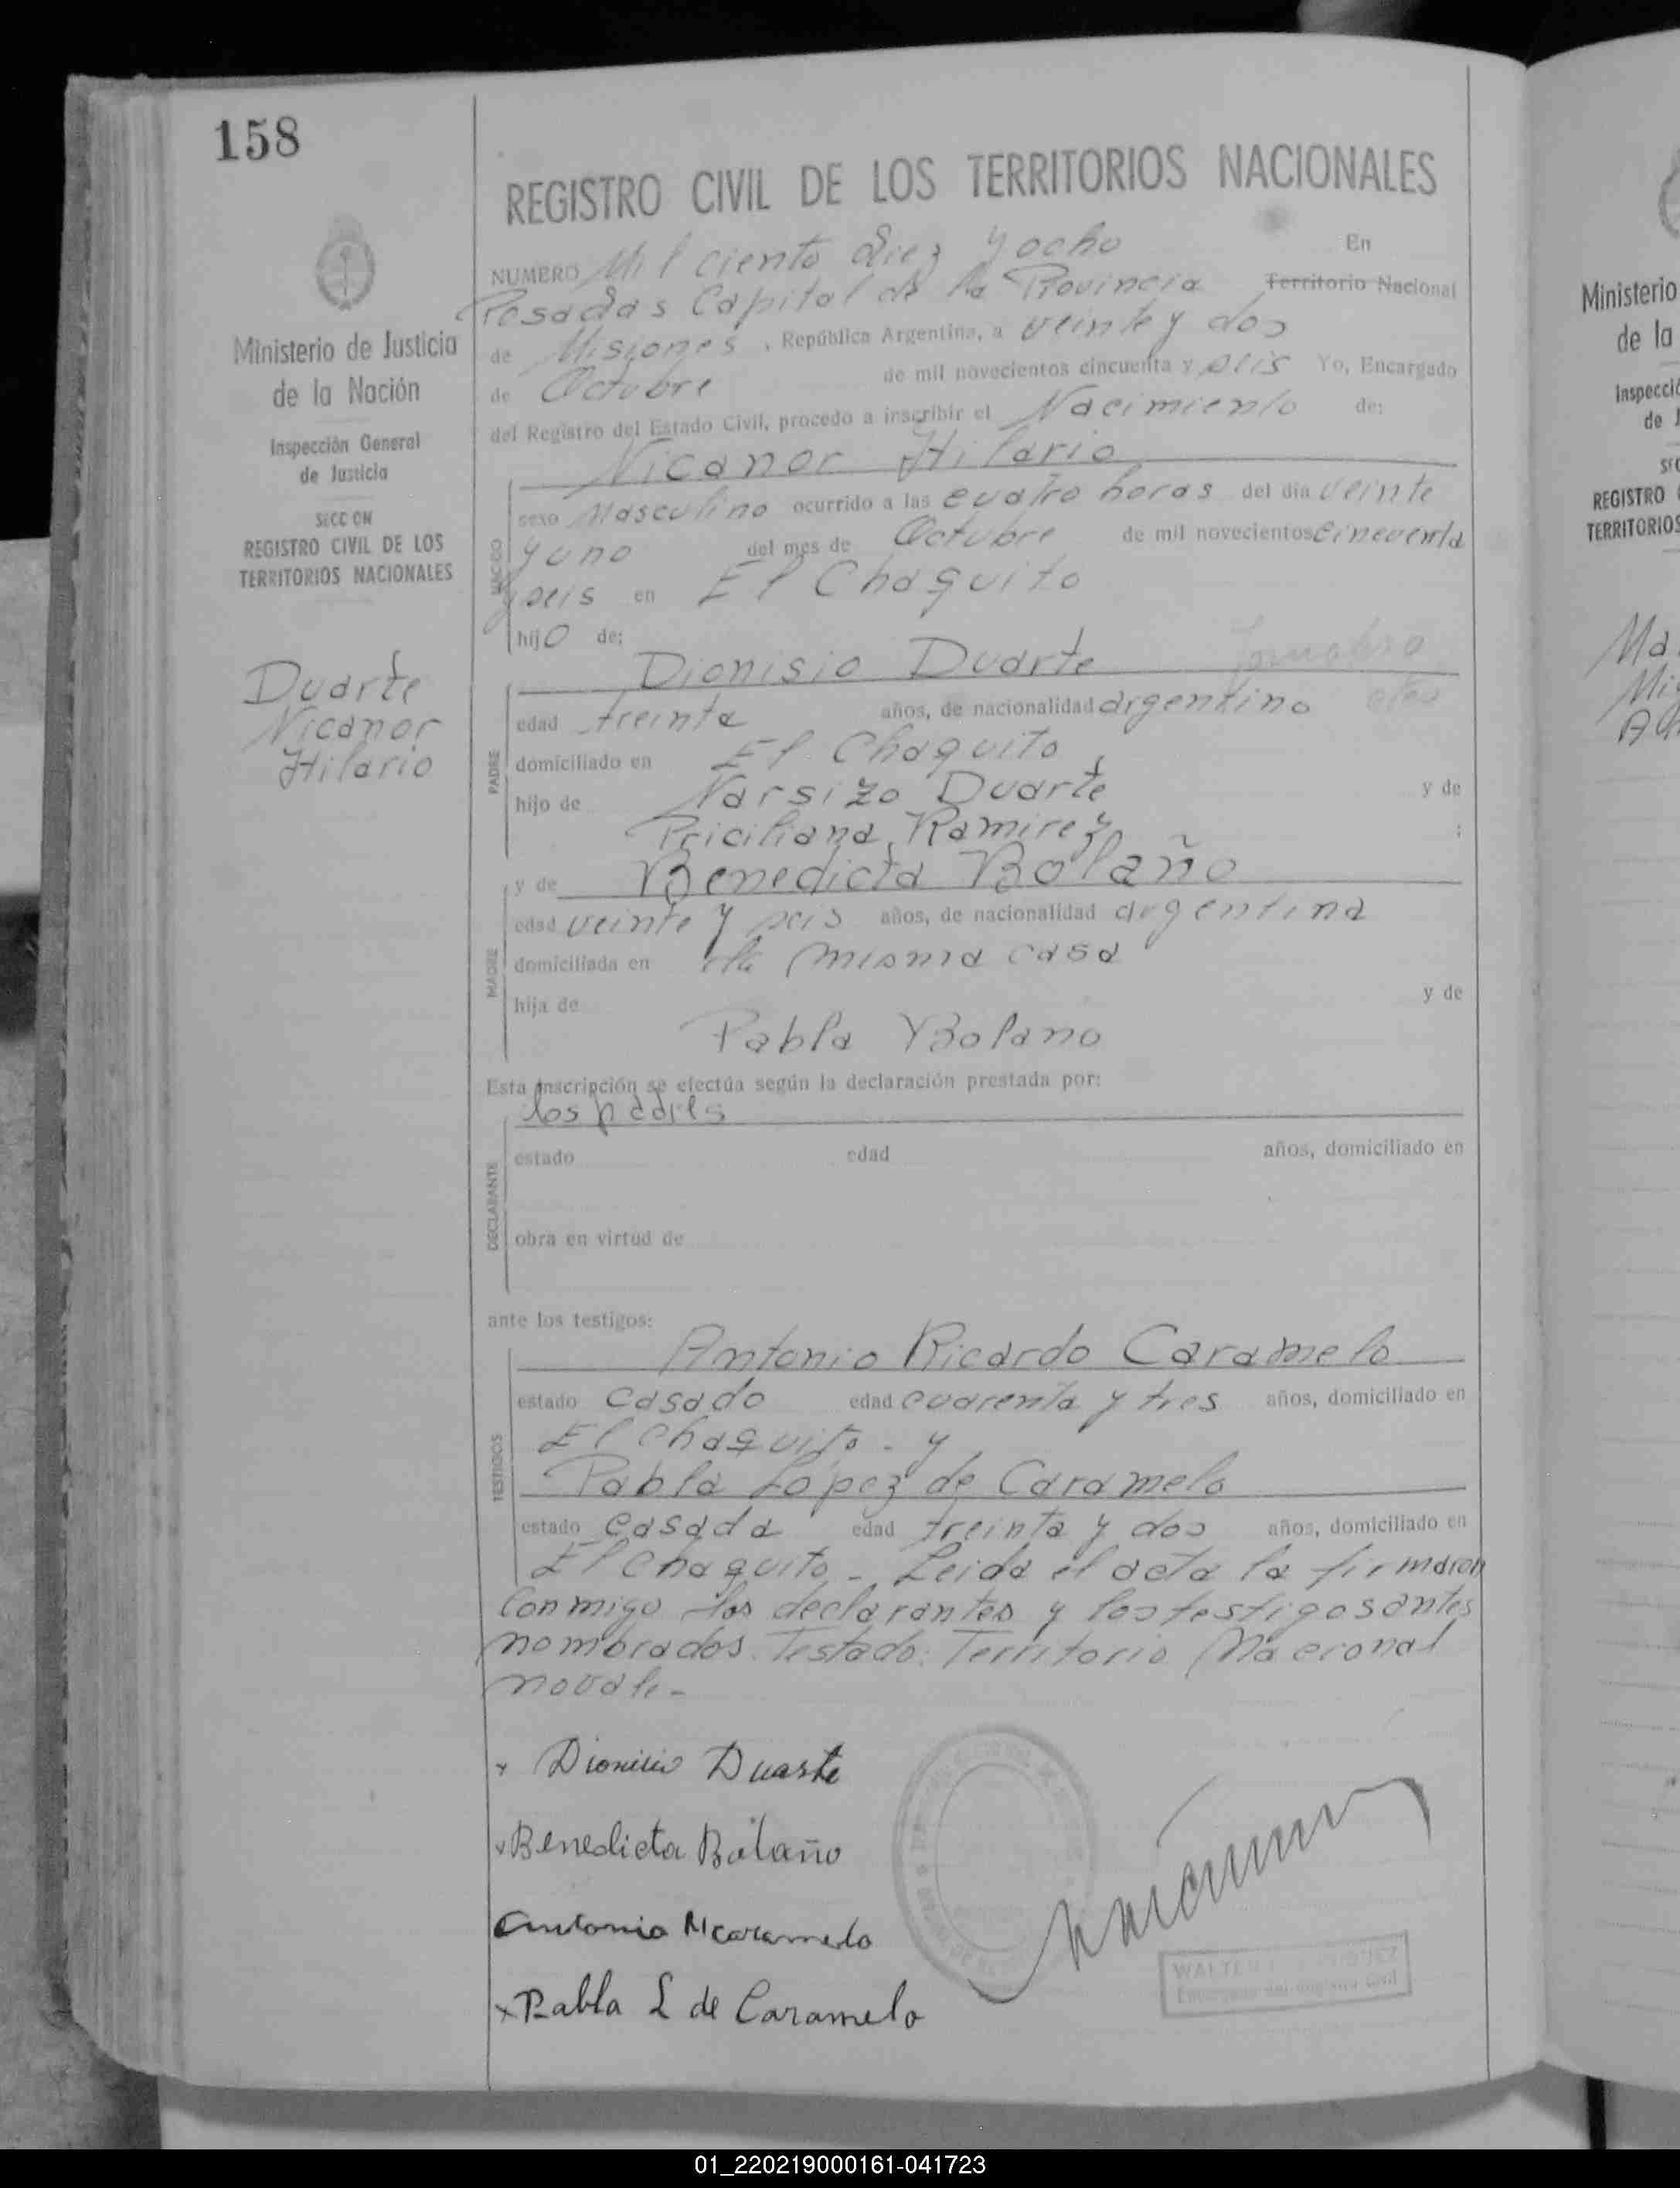 158
REGISTRO CIVIL DE LOS TERRITORIOS NACIONALES
NUMERO Mil ciento diez y ocho En
Posadas Capital de la Provincia Territorio Nacional
de Misiones, República Argentina, a veinte y dos
de Octubre de mil novecientos cincuenta y seis Yo, Encargado
del Registro del Estado Civil, procedo a inscribir el Nacimiento de:
Nicanor Hilario
sexo Masculino ocurrido a las cuatro horas del día veinte
y uno del mes de Octubre de mil novecientos cincuenta
y seis en El Chaquito
hijo de:
Dionisio Duarte
edad treinta años, de nacionalidad argentino
domiciliado en El Chaquito
hijo de Narsizo Duarte y de
Priciliana Ramirez ;
y de Benedicta Bolaño
edad veinte y seis años, de nacionalidad argentina
domiciliada en la misma casa
hija de y de
Pabla Bolano
Esta inscripción se efectúa según la declaración prestada por:
los padres
estado edad años, domiciliado en
obra en virtud de
ante los testigos:
Antonio Ricardo Caramelo
estado casado edad cuarenta y tres años, domiciliado en
El Chaquito - y
Pabla Lopez de Caramelo
estado casada edad treinta y dos años, domiciliado en
El Chaquito - Leida el acta la firmaron
conmigo los declarantes y los testigos antes
nombrados. Testado: Territorio Nacional
no vale -
x Dionisio Duarte
x Benedicta Bolaño
Antonio R caramelo
x Pabla L de Caramelo
WALTER
Encargado del Registro Civil
Ministerio de Justicia
de la Nación
Inspección General
de Justicia
SECCION
REGISTRO CIVIL DE LOS
TERRITORIOS NACIONALES
Duarte
Nicanor
Hilario
NACIDO
PADRE
MADRE
DECLARANTE
TESTIGOS
Ministerio
de la
Inspecció
de J
REGISTRO
TERRITORIOS
01_220219000161-041723